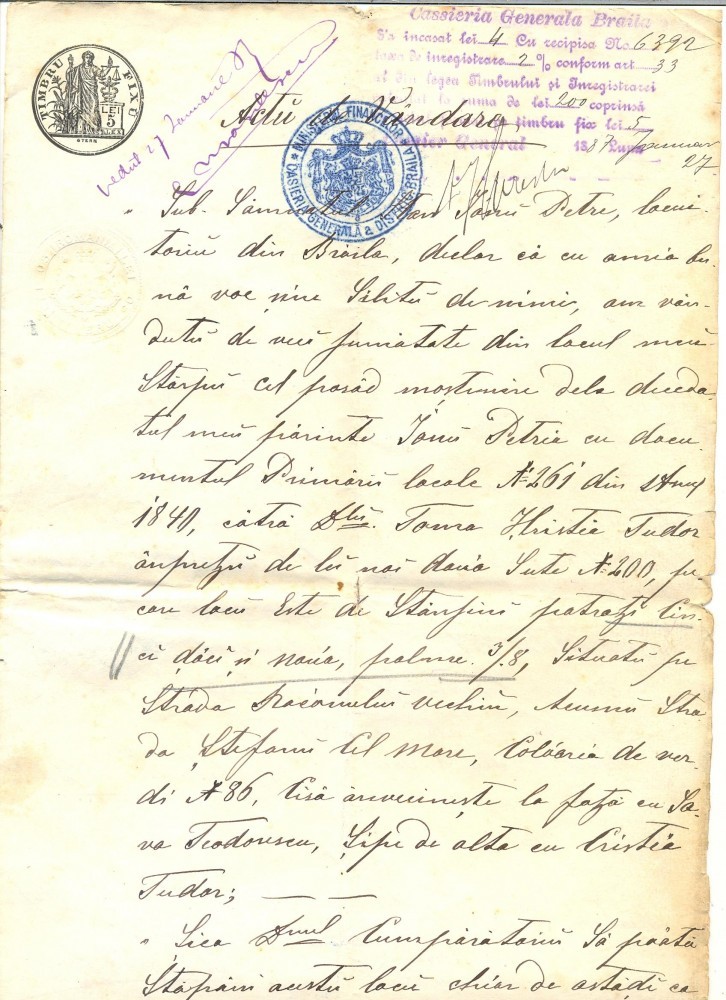 TIMBRU FIX
LEI
5
STERN
Cassieria Generala Braila
S'a incasat lei 4 Cu recipisa No. 6392
taxa de inregistrare 2 % conform art 33
din legea Timbrului și Inregistrarei
suma de lei 200 coprinsă
timbru fix lei 5
General 1887 Luna Januar
27
vedut 27 Januarie
Actu de Vîndare
MINISTERUL FINANCELOR
CASIERIA GENERALĂ a DIST. BRAILA
„ Sub Semnatul Stan Ionu Petre, locui-
toriu din Braila, declar că cu amia bu-
nă voe șine Silitu de nimic, am vân-
dutu de veci jumatate din locul meu
Stârpu cel posăd moștenire dela deceda-
tul meu părinte Ionu Petria cu docu-
mentul Primării locale No 261 din Anul
1840, cătră Dlu. Toma Hristea Tudor
ânprețu de lei noi două Sute No 200, pe
care locu Este de Stânjini patrați Cin-
ci dăci și nouă, palme 3/8, Situatu pe
Strada Racorrului vechiu, Acumu Stra
da Ștefanu Cel Mare, Colóarea de ver-
di No 86, Cisă ânvecinește la față cu Sa-
va Teodorescu, Șipe de alta cu Cristea
Tudor;
„ Șica Dnul Cumpărătoriu Să póată
Stăpâni acestu locu chiar de astădi ca